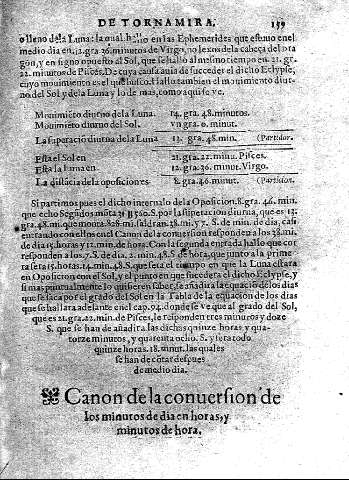 DE TORNAMIRA. 159
o lleno dela Luna: la qual hallo en las Ephemerides que estuuo en el
medio dia en, 12. gra. 36. minutos de Virgo, no lexos dela cabeça del dra
gon, y en signo opuesto al Sol, que se hallo al mesmo tiempo en. 21. gr.
22. minutos de Pisces, De cuya causa auia de succeder el dicho Eclypse,
cuyo mouimiento es el que busco. Hallo tambien el mouimiento diur
no del Sol y dela Luna y lo de mas, como aqui se ve.
Mouimieto diurno dela Luna. 14. gra. 48. minutos.
Mouimieto diurno del Sol. vn gra. 0. minut.
La superaciõ diurna dela Luna 13. gra. 48. min. (Partidor.
Esta el Sol en 21. gra. 22. minu. Pisces.
Esta la Luna en 12. gra. 36. minut. Virgo.
La distãcia dela oposiciones 8. gra. 46. minut. (Particion.
Si partimos pues el dicho interualo dela Oposicion. 8. gra. 46. min.
que echo Segũdos mõta 31 560. S. por la superatiou diurna, que es 13.
gra. 48. mi. que monta. 828. mi. saldran. 38. mi. y 7. S. de min. de dia, cõ
entrando con ellos en el Canon dela conuersion responden a los 38. mi.
de dia 15. horas y 12. min. de hora. Con la segunda entrada hallo que cor
responden a los. 7. S. de dia, 2. min. 48. S. de hora, que junto a la prime-
ra sera 15. horas. 14. min. 48. S. que sera el tiempo en que la Luna estara
en Oposicion con el Sol: y el punto en que succedera el dicho Eclypse, y
si mas puntualmente lo quisieren saber, se añadira la equaciõ delos dias
que se saca por el grado del Sol en la Tabla de la equacion de los dias
que se hallara adelante en el cap. 94. donde se ve que al grado del Sol,
que es 21. gra. 22. min. de Pisces, le responden tres minutos y doze
S. que se han de añadir a las dichas quinze horas y qua-
torze minutos, y quarenta ocho. S. y sera todo
quinze horas. 18. minut. las quales
se han de cõtar despues
de medio dia.
Canon de la conuersion de
los minutos de dia en horas, y
minutos de hora.